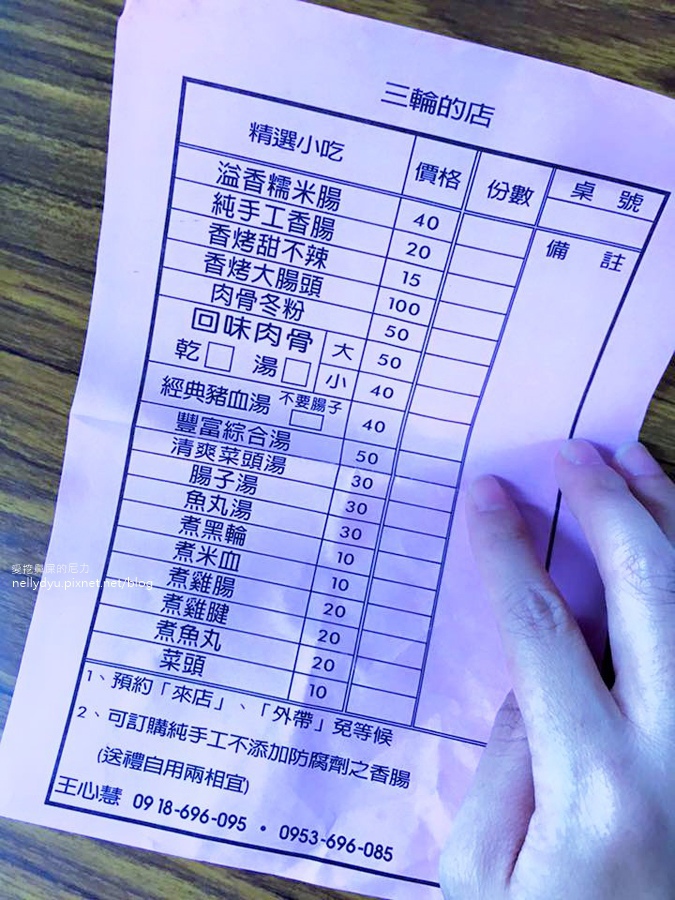 三輪的店
精選小吃 價格 份數 桌號
備註
溢香糯米腸 40
純手工香腸 20
香烤甜不辣 15
香烤大腸頭 100
肉骨冬粉 50
回味肉骨 大 50
乾□ 湯□ 小 40
經典豬血湯 不要腸子□ 40
豐富綜合湯 50
清爽菜頭湯 30
腸子湯 30
魚丸湯 30
煮黑輪 10
煮米血 10
煮雞腸 20
煮雞腱 20
煮魚丸 20
菜頭 10
1、預約「來店」、「外帶」免等候
2、可訂購純手工不添加防腐劑之香腸
(送禮自用兩相宜)
王心慧 0918-696-095 • 0953-696-085
nellydyu.pixnet.net/blog